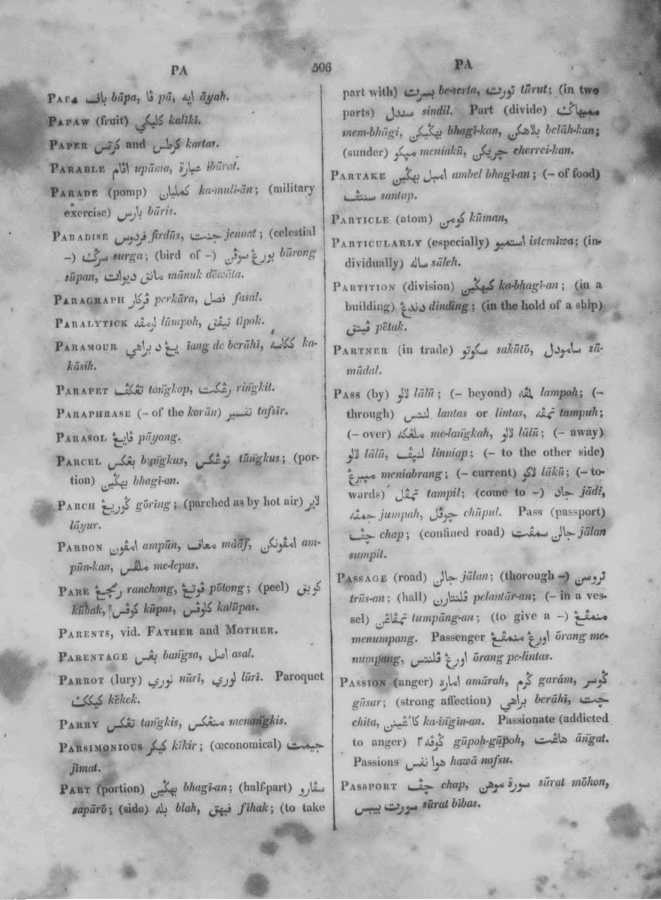 PA
506
PA
PAPA باف bāpa, ڤا pā, ايه āyah.
PAPAW (fruit) كليكي kalīkī.
PAPER كرتس and كرطس kartas.
PARABLE اڤام upāma, عبارة ībārat.
PARADE (pomp) كمليان ka-muli-ān; (military
exercise) بارس bāris.
PARADISE فردوس firdūs, جنت jennat; (celestial
–) سرݢ surga; (bird of –) بورغ سوڤن būrong
sūpan, مانق ديوات mānuk dēwāta.
PARAGRAPH ڤركار perkāra, فصل fasal.
PARALYTICK لومڤه lūmpoh, تيڤق tīpok.
PARAMOUR يڠ د براهي iang de berāhī, ka-
kāsih.
PARAPET tongkop, رڠكت ringkit.
PARAPHRASE (– of the korān) تفسير tafsīr.
PARASOL ڤايڠ pāyong.
PARCEL بڠكس bungkus, توڠكس tūngkus; (por-
tion) بهݢين bhagī-an.
PARCH ݢوريڠ gōring; (parched as by hot air) لاير
lāyur.
PARDON امڤون ampūn, معاف māāf, امڤونكن am-
pūn-kan, ملڤس me-lepas.
PARE رنچڠ ranchong, ڤوتڠ pōtong; (peel) كوبق
kūbak, كوڤس kūpas, كلوڤس kalūpas.
PARENTS, vid. FATHER and MOTHER.
PARENTAGE بڠس bangsa, اصل asal.
PARROT (lury) نوري nūrī, لوري lūrī. Paroquet
كيكك kēkek.
PARRY تڠكس tangkis, منڠكس menangkis.
PARSIMONIOUS كيكر kīkir; (œconomical) جيمت
jīmat.
PART (portion) بهݢين bhagī-an; (half-part) سڤارو
sapārō; (side) بله blah, ڤيهق pīhak; (to take
part with) بسرت be-serta, تورت tūrut; (in two
parts) سندل sindil. Part (divide) ممبهاݢي
mem-bhāgi, بهݢيكن bhagī-kan, بلاهكن belāh-kan;
(sunder) منياكو meniakū, چريكن cherrei-kan.
PARTAKE امبل بهݢين ambel bhagī-an; (– of food)
سنتڤ santap.
PARTICLE (atom) كومن kūman,
PARTICULARLY (especially) استميو istemīwa; (in-
dividually) ساله sāleh.
PARTITION (division) كبهݢين ka-bhagī-an; (in a
building) دندڠ dinding; (in the hold of a ship)
ڤيتق pētak.
PARTNER (in trade) سكوتو sakūtō, سامودل sā-
mūdal.
PASS (by) لالو lālū; (– beyond) لمڤه lampoh; (–
through) لنتس lantas or lintas, تمڤه tampuh;
(– over) ملڠكه me-langkah, لالو lālū; (– away)
لالو lālū, لنيڤ linniap; (– to the other side)
منيبرڠ meniabrang; (– current) لاكو lākū; (– to-
wards) تمڤل tampil; (come to –) جادي jādī,
جمڤه jumpah, چوڤل chūpul. Pass (passport)
چڤ chap; (confined road) جالن سمڤت jālan
sumpit.
PASSAGE (road) جالن jālan; (thorough –) تروسن
trūs-an; (hall) ڤلنتارن pelantār-an; (– in a ves-
sel) تمڤاڠن tumpāng-an; (to give a –) منمڤڠ
menumpang. Passenger اورڠ منمڤڠ ōrang me-
numpang, اورڠ ڤلنتس ōrang pe-lintas.
PASSION (anger) امارة amārah, ݢرم garám, ݢوسر
gūsar; (strong affection) براهي berāhī, چت
chita, كاءڠينن ka-īngin-an. Passionate (addicted
to anger) ݢوڤه٢ gūpoh-gūpoh, هاڠت āngat.
Passions هوا نفس hawā nafsu.
PASSPORT چڤ chap, سورة موهن sūrat mōhon,
سورت بيبس sūrat bības.